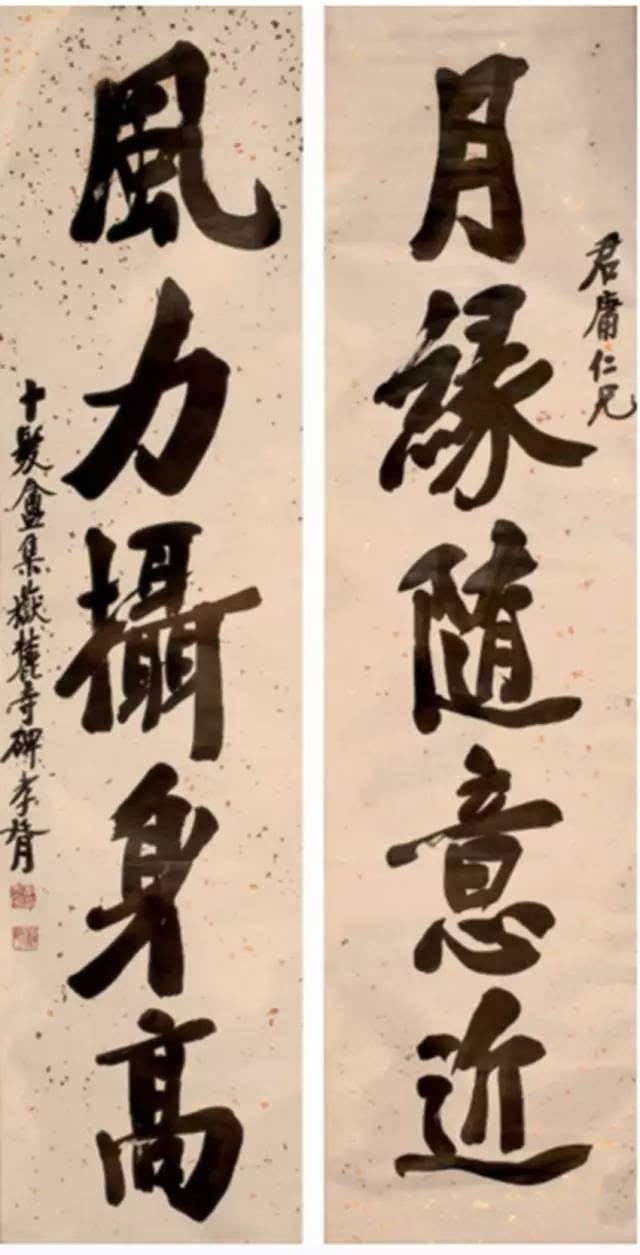 君庸仁兄
月緣隨意近
風力攝身高
十髮盦集嶽麓寺碑李